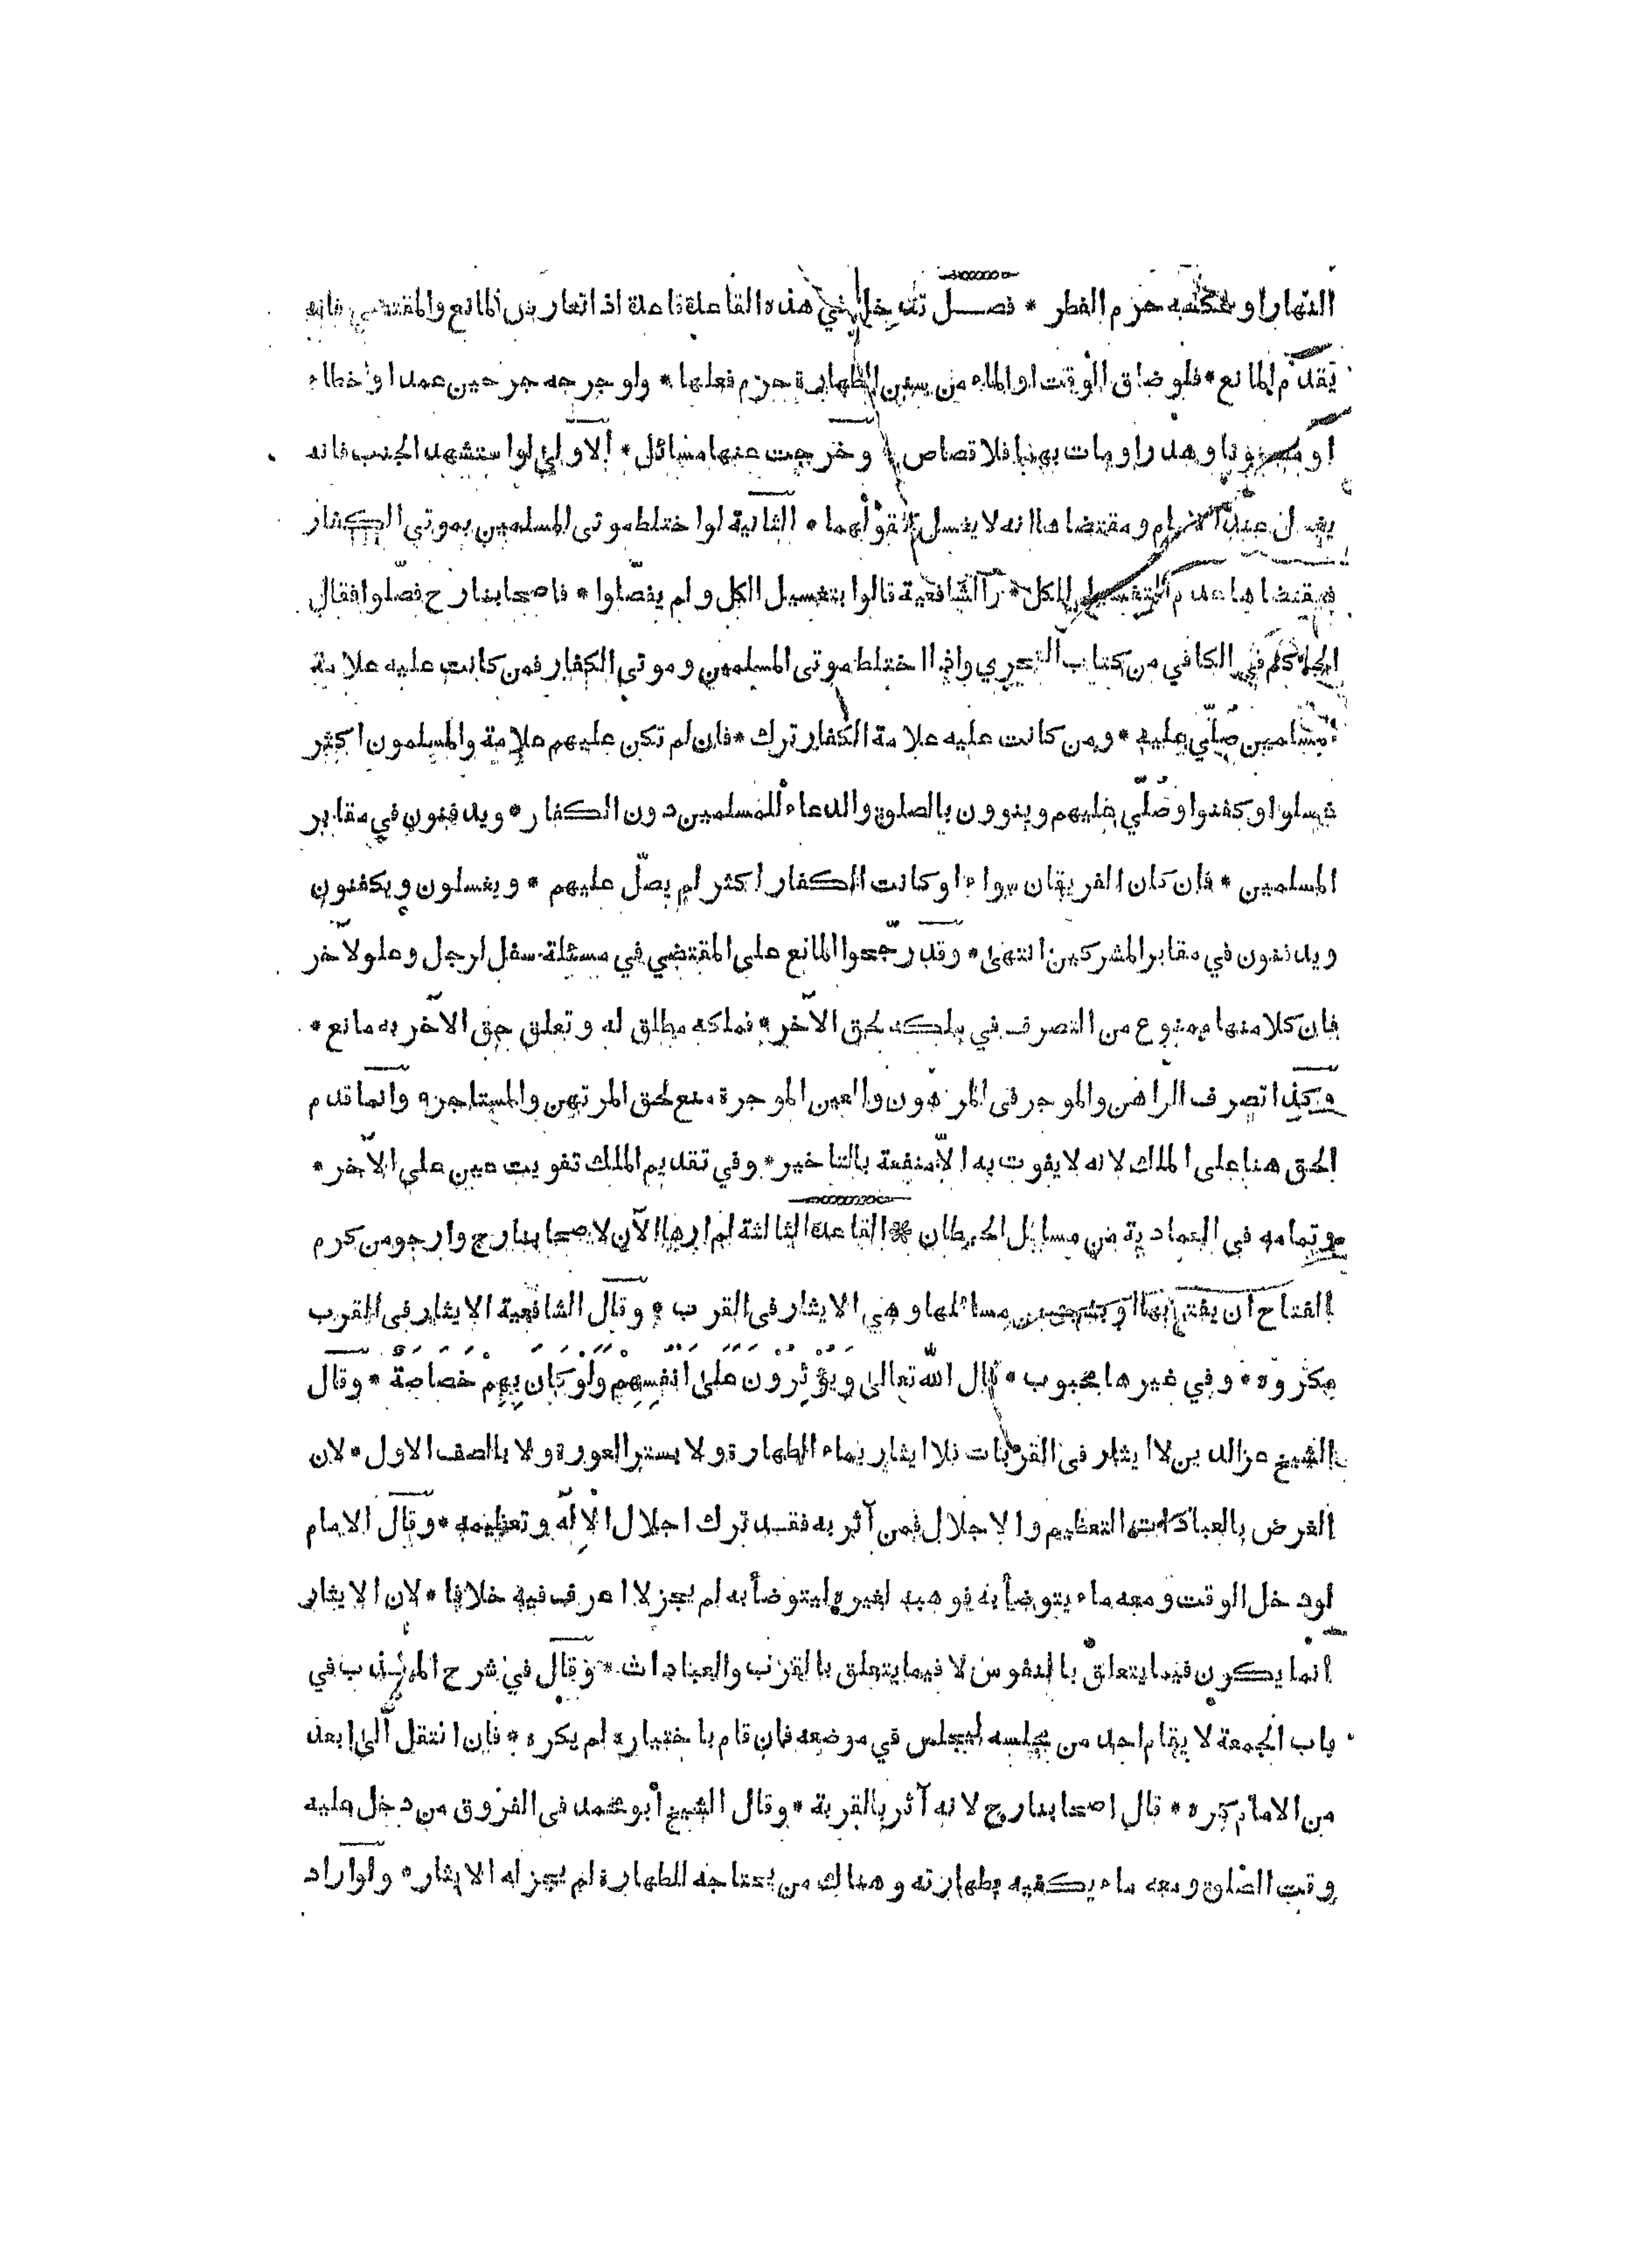 النهار او عكسه حرم الفطر * فصــل تدخل في هذه القاعدة قاعدة اذا تعارض المانع والمقتضي فانه
يقدم المانع * فلو ضاق الوقت او الماء من سنن الطهارة حرم فعلها * ولو جرحه جرحين عمدا او خطاء
او مضمونا وهدرا ومات بهما فلا قصاص وخرجت عنها مسائل * الاولى لو استشهد الجنب فانه
يغسل عند الامام ومقتضاها انه لا يغسل كقولهما * الثانية لو اختلط موتى المسلمين بموتي الكفار
فمقتضاها عدم التغسيل للكل * والشافعية قالوا بتغسيل الكل ولم يفصّلوا * فاصحابنا رح فصّلوا فقال
الحاكم في الكافي من كتاب التحري واذا اختلط موتى المسلمين وموتى الكفار فمن كانت عليه علامة
المسلمين صُلّي عليه * ومن كانت عليه علامة الكفار ترك * فان لم تكن عليهم علامة والمسلمون اكثر
غسلوا وكفنوا وصُلّي عليهم وينوون بالصلوة والدعاء للمسلمين دون الكفار * ويدفنون في مقابر
المسلمين * فان كان الفريقان سواء او كانت الكفار اكثر لم يصلّ عليهم * ويغسلون ويكفنون
ويدفنون في مقابر المشركين انتهى * وقد رجّحوا المانع على المقتضي في مسئلة سفل لرجل وعلو لآخر
فان كلا منهما ممنوع من التصرف في ملكه لحق الآخر * فملكه مطلق له وتعلق حق الآخر به مانع *
وكذا تصرف الراهن والموجر فى المرهون والعين الموجرة منع لحق المرتهن والمستاجر * وانما قدم
الحق هنا على الملك لانه لا يفوت به الّا منفعة بالتاخير * وفي تقديم الملك تفويت عين على الآخر *
وتمامه فى العمادية من مسايل الحيطان * القاعدة الثالثة لم ارها الآن لاصحابنا رح وارجو من كرم
الفتاح ان يفتح بها او بشيء من مسائلها وهي الايثار فى القرب * وقال الشافعية الايثار فى القرب
مكروه * وفي غيرها محبوب * قال الله تعالى وَيُؤْثِرُونَ عَلَىٰ اَنْفُسِهِمْ وَلَوْ كَانَ بِهِمْ خَصَاصَةٌ * وقال
الشيخ عز الدين لا ايثار فى القربات فلا ايثار بماء الطهارة ولا بستر العورة ولا بالصف الاول * لان
الغرض بالعبادات التعظيم والاجلال فمن آثر به فقد ترك اجلال الاِلٰه وتعظيمه * وقال الامام
لو دخل الوقت ومعه ماء يتوضأ به فوهبه لغيره ليتوضأ به لم يجز لا اعرف فيه خلافا * لان الايثار
انما يكون فيما يتعلق بالنفوس لا فيما يتعلق بالقرب والعبادات * وقال في شرح المهذب في
باب الجمعة لا يقام احد من مجلسه ليجلس في موضعه فان قام باختياره لم يكره * فان انتقل الى ابعد
من الامام كره * قال اصحابنا رح لانه آثر بالقربة * وقال الشيخ ابو محمد فى الفروق من دخل عليه
وقت الصلوة ومعه ماء يكفيه بطهارته وهناك من يحتاجه للطهارة لم يجز له الايثار * ولو اراد